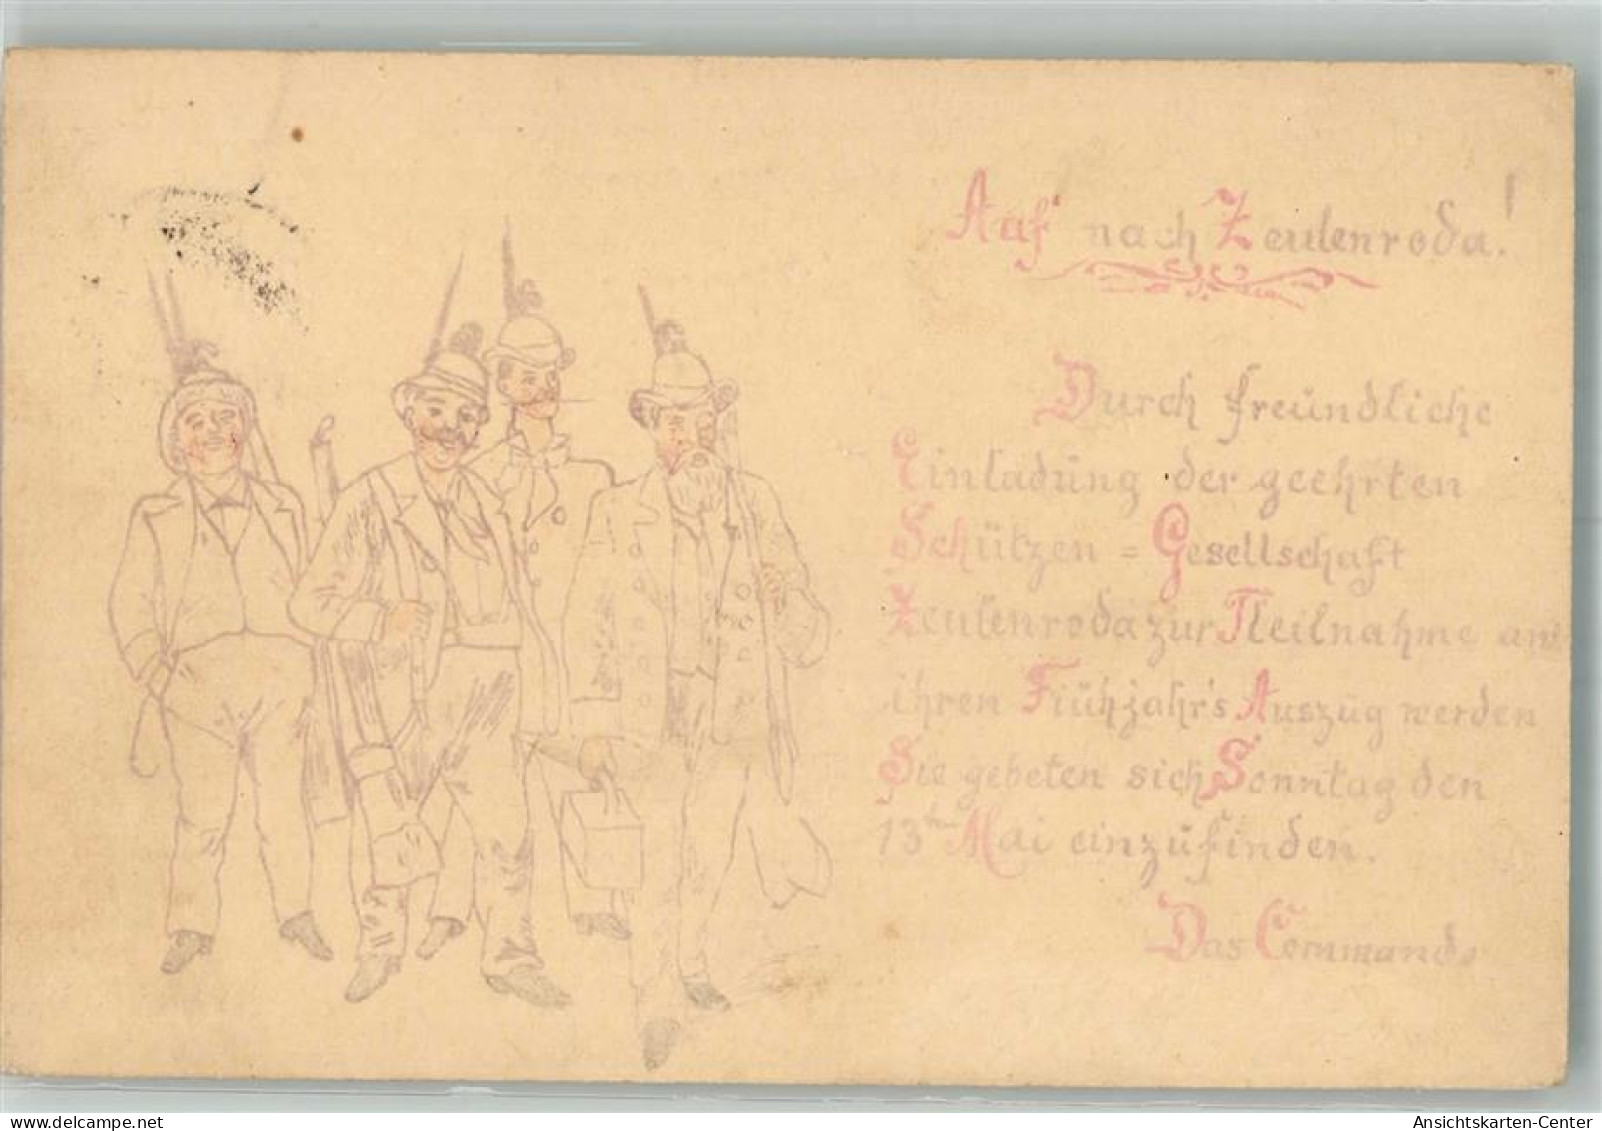 Auf nach Zeulenroda!
Durch freundliche
Einladung der geehrten
Schützen = Gesellschaft
Zeulenroda zur Theilnahme an
ihren Frühjahr's Auszug werden
Sie gebeten sich Sonntag den
13ten Mai einzufinden.
Das Commando
Ansichtskarten-Center